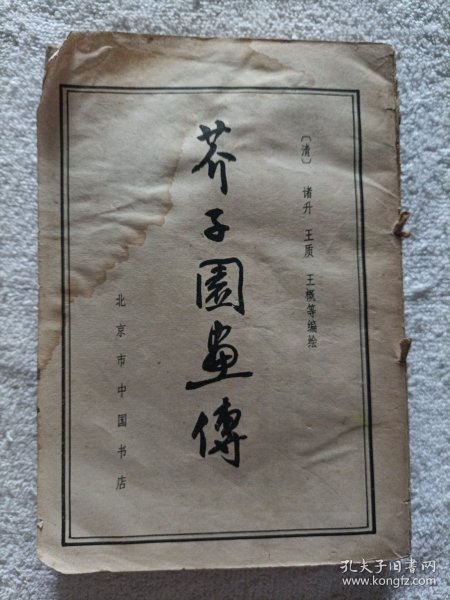 〔清〕 诸升 王质 王概等编绘
芥子園畫傳
北京市中国书店
孔夫子旧书网
www.kongfz.com